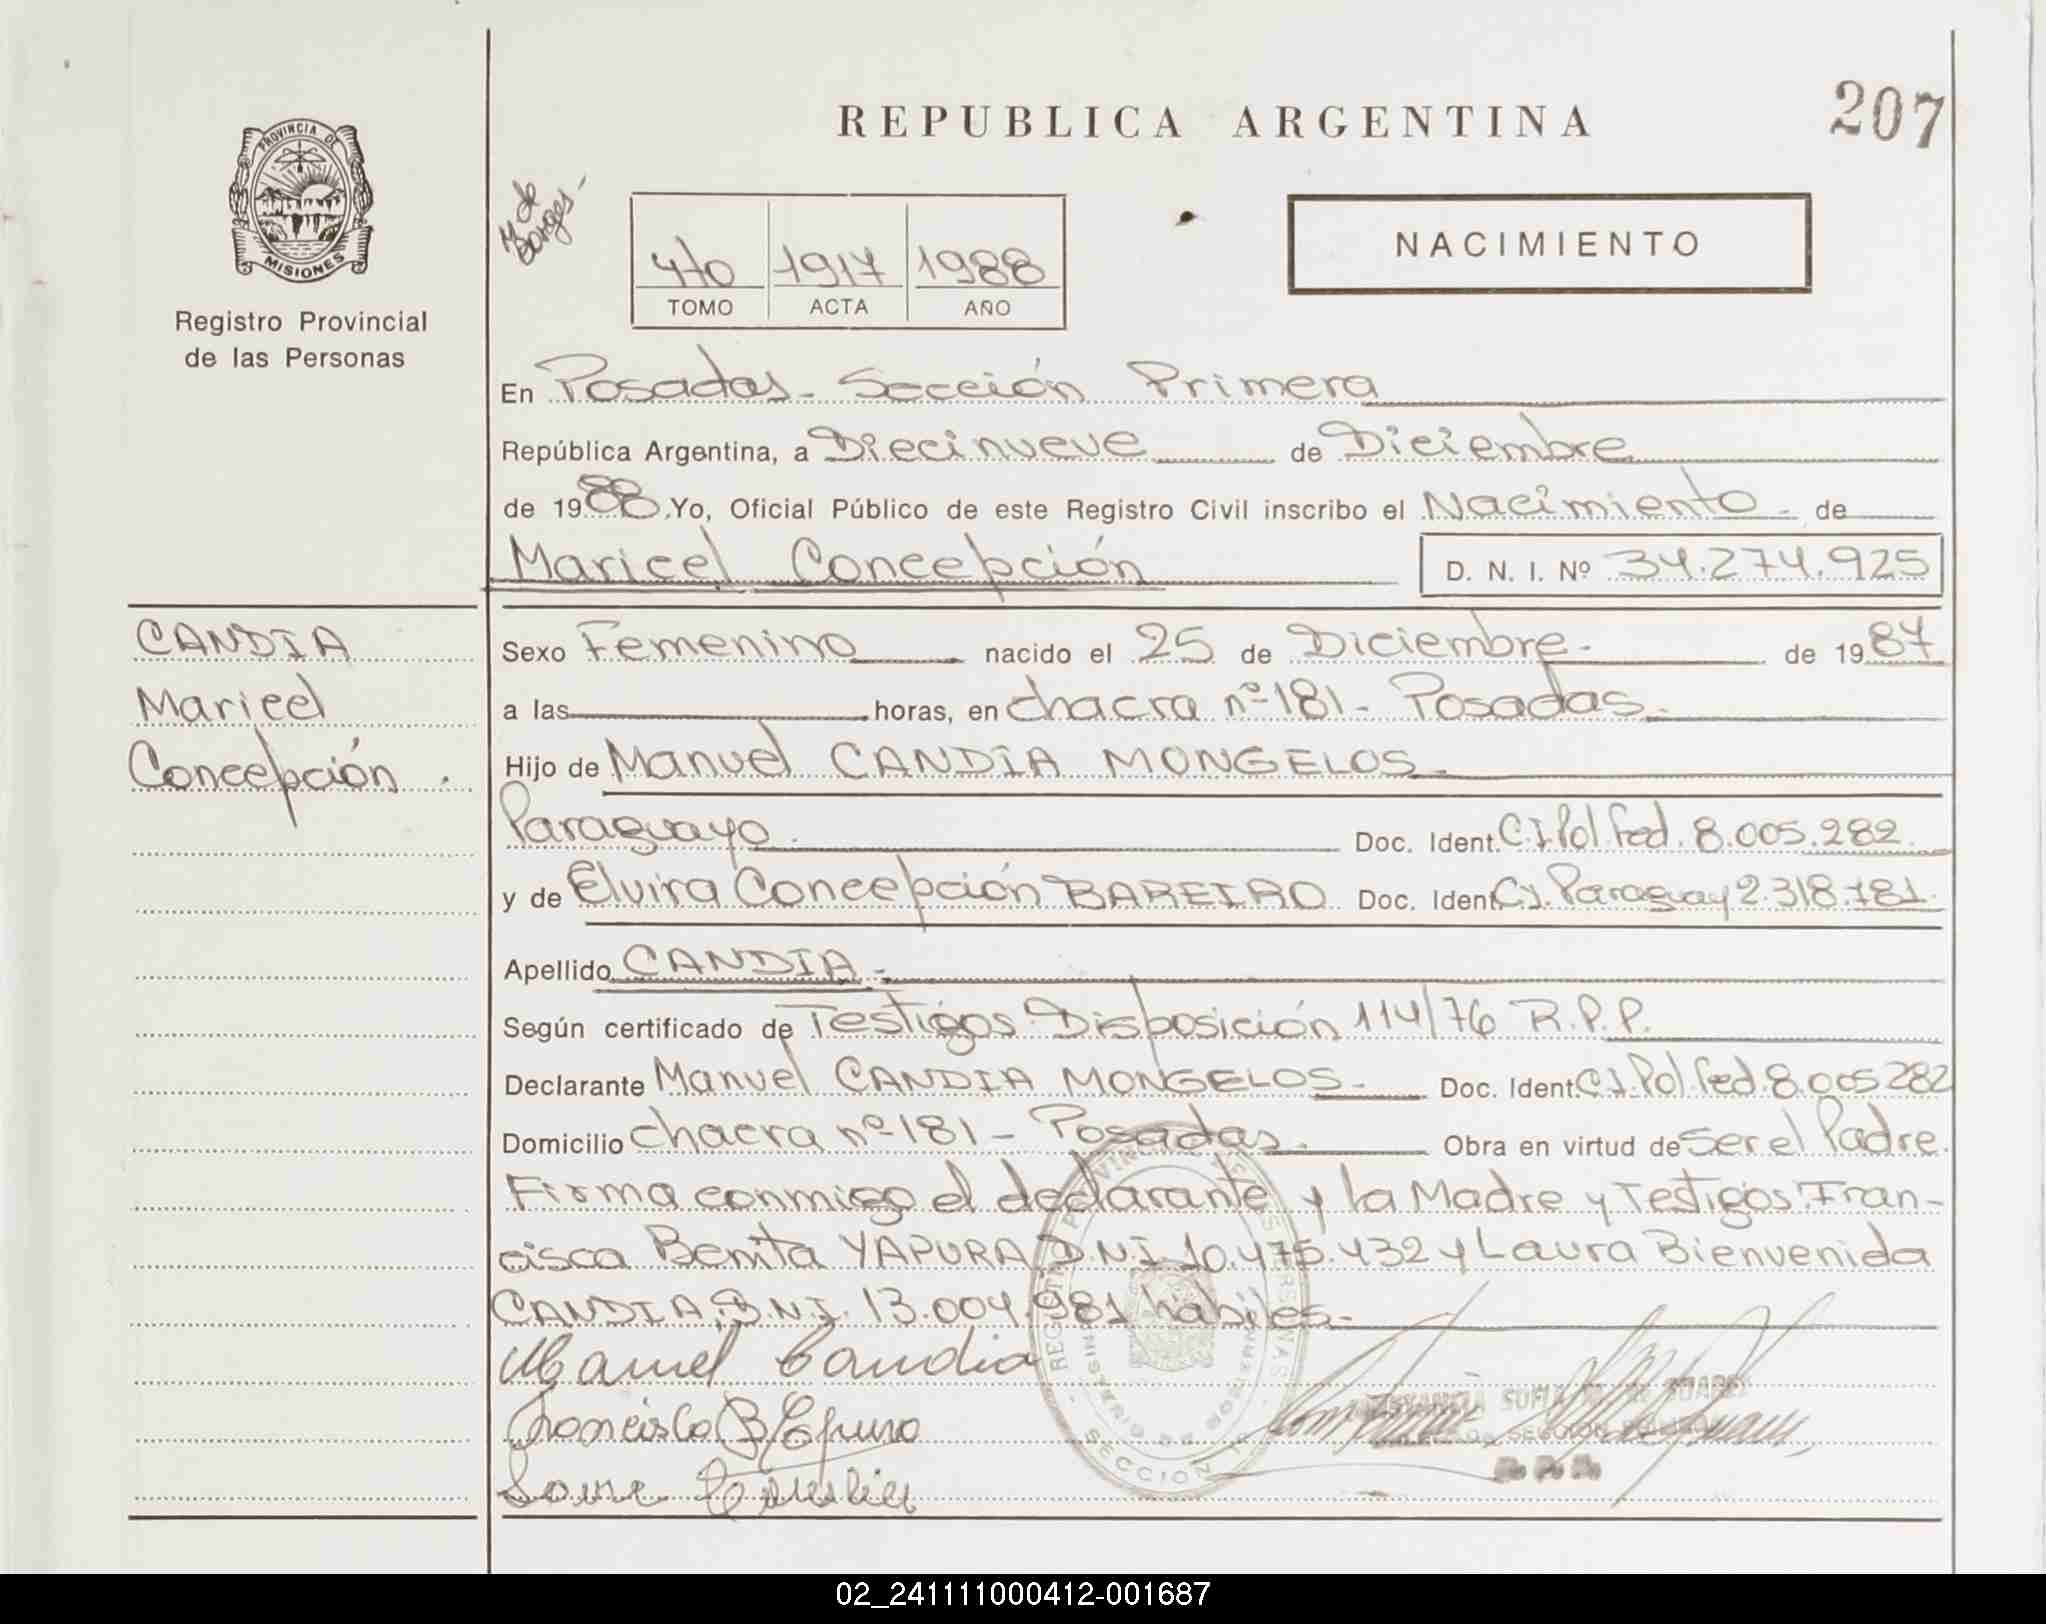 REPUBLICA ARGENTINA
207
PROVINCIA DE
MISIONES
Registro Provincial
de las Personas
de
Borges-
4to 1917 1988
TOMO ACTA AÑO
NACIMIENTO
En Posadas - Sección Primera
República Argentina, a Diecinueve de Diciembre
de 1988. Yo, Oficial Público de este Registro Civil inscribo el Nacimiento - de
Maricel Concepción D. N. I. Nº 34.274.925
CANDIA
Maricel
Concepción.
Sexo Femenino nacido el 25 de Diciembre - de 1987
a las horas, en chacra nº 181 - Posadas.
Hijo de Manuel CANDIA MONGELOS -
Paraguayo. Doc. Ident. C.I.Pol.Fed. 8.005.282.
y de Elvira Concepción BAREIRO Doc. Ident. C.I. Paraguay 2.318.781.
Apellido CANDIA.-
Según certificado de Testigos. Disposición 114/76 R.P.P.
Declarante Manuel CANDIA MONGELOS - Doc. Ident. C.I.Pol.Fed.8.005282
Domicilio chacra nº 181 - Posadas. Obra en virtud de ser el Padre.
Firma conmigo el declarante y la Madre y Testigos. Fran-
cisca Benita YAPURA D.N.I. 10.475.432 y Laura Bienvenida
CANDIA, D.N.I. 13.004.981 habiles.-
Manuel Candia
SECCION
02_241111000412-001687